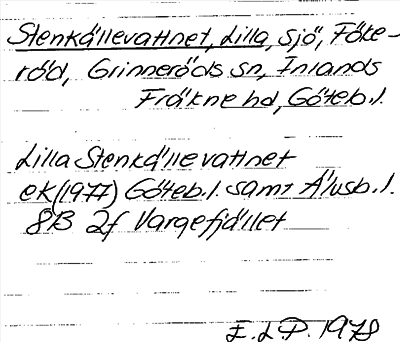 Stenkällevattnet, Lilla, sjö, Föke-
röd, Grinneröds sn, Inlands
Fräkne hd, Göteb.l.
Lilla Stenkällevattnet
ek (1977) Göteb.l. samt Älvsb.l.
8B 2f Vargefjället
E.L.P. 1978